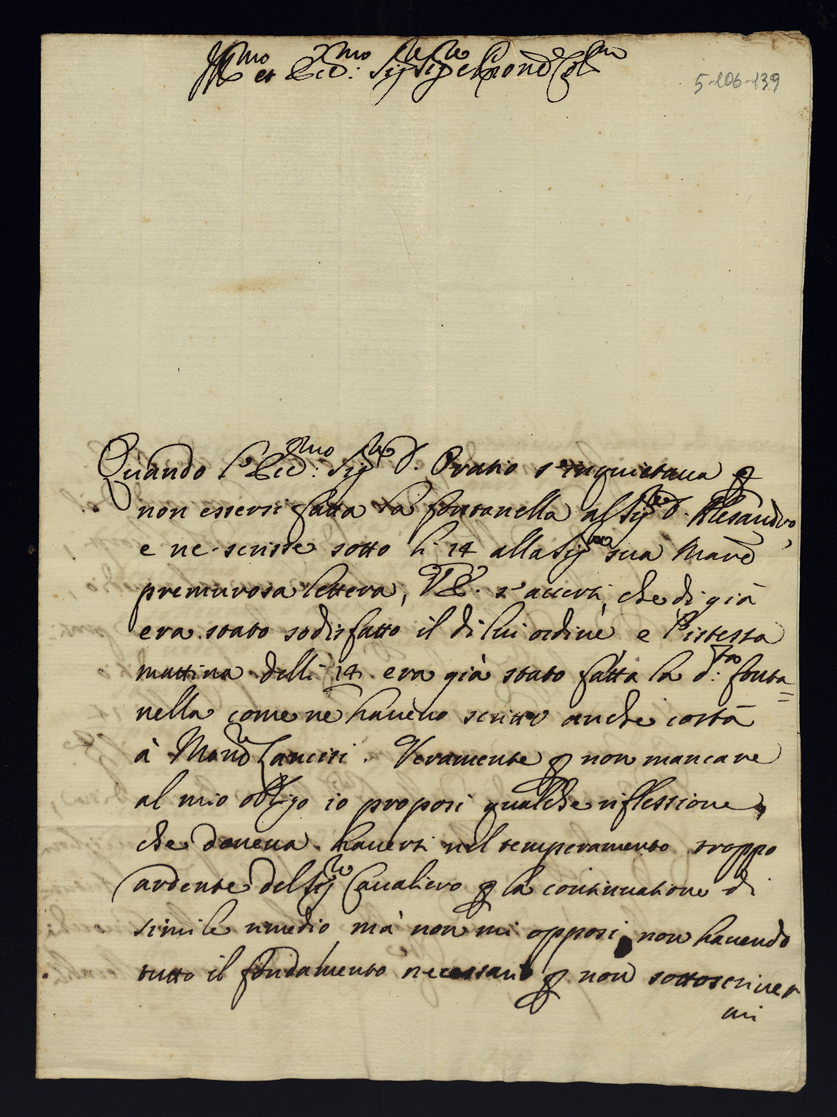 Ill.mo et Ecc.mo Sig.re Sig.re e Pron.e Col.mo
5-106-139
Quando l'Ecc.mo Sig.re D. Oratio s'inquietava p
non essersi fatta la fontanella al Sig.re D. Alesandro,
e ne scrisse sotto li 14 alla Sig.ra sua Mad.e
premurosa lettera, V.E. s'accerti, che di già
era stato sodisfatto il di lui ordine e l'istessa
mattina delli 14 era già stato fatta la d.ta fonta=
nella come ne havevo scritto anche costà
à Mons.re Lancisi. Veramente p non mancare
al mio obligo io proposi qualche riflessione,
che doveva haversi nel temperamento troppo
ardente del Sig.re Cavaliero p la continuatione di
simile rimedio mà non mi opposi, non havendo
tutto il fondamento necessario p non sottoscriver
mi